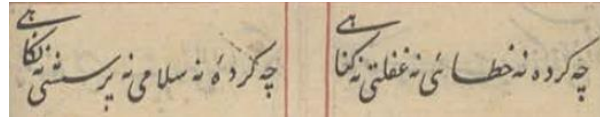 چه کرده نه خطائی نه غفلتی نه کناهی
چه کردهٔ نه سلامی نه پرسشی نه نکاهی